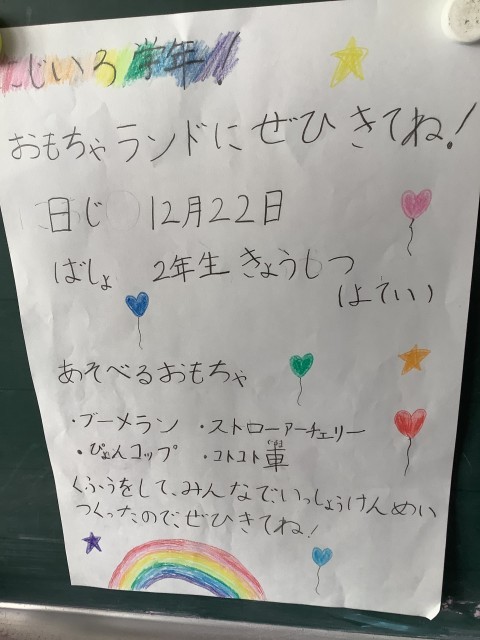 にじいろ学年!
おもちゃランドにぜひきてね!
日じ 12月22日
ばしょ 2年生きょうしつ
(よてい)
あそべるおもちゃ
・ブーメラン ・ストローアーチェリー
・ぴょんコップ ・コトコト車
くふうをして、みんなで、いっしょうけんめい
つくったので、ぜひきてね!